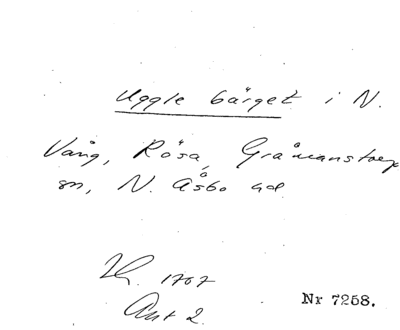 Uggle bärget i N.
Vång, Rösa, Gråmanstorp
sn, N. Åsbo hd
1707
Ant 2.
Nr 7258.